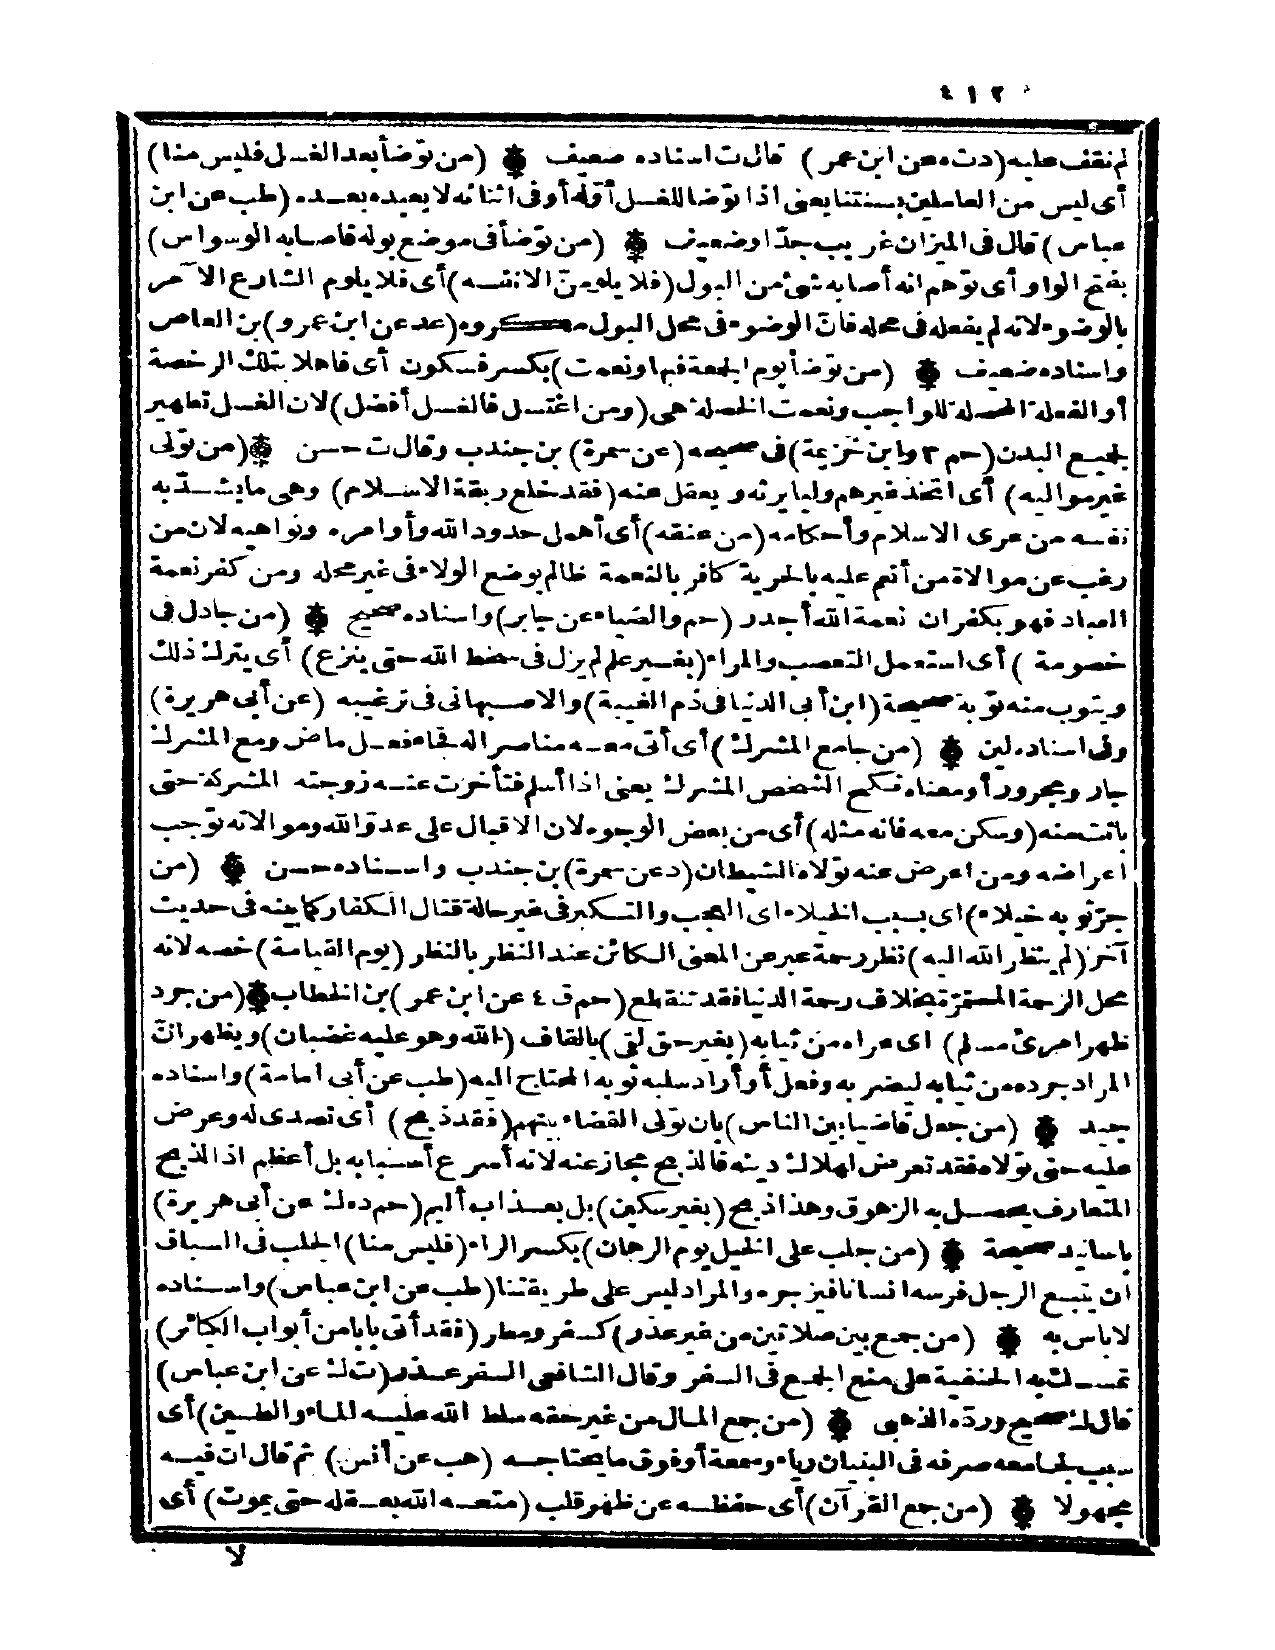 ٤١٢
لم نقف عليه (دت ه عن ابن عمر) قال ت اسناده ضعيف (من توضأ بعد الغسل فليس منا)
أى ليس من العاملين بسنتنا يعنى اذا توضا للغسل أوله أو فى اثنائه لا يعيده بعده (طب عن ابن
عباس) قال فى الميزان غريب جدّا وضعيف (من توضأ فى موضع بوله فاصابه الوسواس)
بفتح الواو أى توهم انه أصابه شئ من البول (فلا يلومنّ الا نفسه) أى فلا يلوم الشارع الآمر
بالوضوء لانه لم يفعله فى محله فانّ الوضوء فى محل البول مكروه (عد عن ابن عمرو) بن العاص
واسناده ضعيف (من توضأ يوم الجمعة فبها ونعمت) بكسر فسكون أى فاهلا بتلك الرخصة
أو الفعلة المحصلة للواجب ونعمت الخصلة هى (ومن اغتسل فالغسل أفضل) لان الغسل تطهير
لجميع البدن (حم ٣ وابن خزيمة) فى صحيحه (عن سمرة) بن جندب وقال ت حسن (من تولى
غير مواليه) أى اتخذ غيرهم وليا يرثه ويعقل عنه (فقد خلع ربقة الاسلام) وهى ما يشدّ به
نفسه من عرى الاسلام وأحكامه (من عنقه) أى أهمل حدود الله وأوامره ونواهيه لان من
رغب عن موالاة من أنعم عليه بالحرية كافر بالنعمة ظالم بوضع الولاء فى غير محله ومن كفر نعمة
العباد فهو بكفران نعمة الله أجدر (حم والضياء عن جابر) واسناده صحيح (من جادل فى
خصومة) أى استعمل التعصب والمراء (بغير علم لم يزل فى سخط الله حتى ينزع) أى يترك ذلك
ويتوب منه توبة صحيحة (ابن أبى الدنيا فى ذم الغيبة) والاصبهانى فى ترغيبه (عن أبى هريرة)
وفى اسناده لين (من جامع المشرك) أى أتى معه مناصرا له فجاء فعل ماض ومع المشرك
جار ومجرور أو معناه نكح الشخص المشرك يعنى اذا أسلم فتأخرت عنه زوجته المشركة حتى
بانت منه (وسكن معه فانه مثله) أى من بعض الوجوه لان الاقبال على عدوّ الله وموالاته توجب
اعراضه ومن اعرض عنه تولاه الشيطان (د عن سمرة) بن جندب واسناده حسن (من
جرّ ثوبه خيلاء) اى بسبب الخيلاء اى العجب والتكبر فى غير حالة قتال الكفار كما بينه فى حديث
آخر (لم ينظر الله اليه) نظر رحمة عبر عن المعنى الكائن عند النظر بالنظر (يوم القيامة) خصه لانه
محل الرحمة المستمرّة بخلاف رحمة الدنيا فقد تنقطع (حم ق ٤ عن ابن عمر) بن الخطاب (من جرد
ظهر امرئ مسلم) اى عراه من ثيابه (بغير حق لقى) بالقاف (الله وهو عليه غضبان) ويظهر انّ
المراد جرده من ثيابه ليضربه وفعل أو أراد سلبه ثوبه المحتاج اليه (طب عن أبى امامة) واسناده
جيد (من جعل قاضيا بين الناس) بان تولى القضاء بينهم (فقد ذبح) أى تصدى له وعرض
عليه حتى تولاه فقد تعرض لهلاك دينه فالذبح مجاز عنه لانه أسرع أسبابه بل أعظم اذ الذبح
المتعارف يحصل به الزهوق وهذا ذبح (بغير سكين) بل بعذاب أليم (حم د ه ك عن أبى هريرة)
باسانيد صحيحة (من جلب على الخيل يوم الرهان) بكسر الراء (فليس منا) الجلب فى السباق
ان يتبع الرجل فرسه انسانا فيزجره والمراد ليس على طريقتنا (طب عن ابن عباس) واسناده
لا باس به (من جمع بين صلاتين من غير عذر) كسفر ومطر (فقد أتى بابا من أبواب الكبائر)
تمسك به الحنفية على منع الجمع فى السفر وقال الشافعى السفر عذر (ت ك عن ابن عباس)
قال ك صحيح وردّه الذهبى (من جمع المال من غير حقه سلط الله عليه الماء والطين) أى
سبب لجامعه صرفه فى البنيان رياء وسمعة أو فوق ما يحتاجه (هب عن أنس) ثم قال ان فيه
مجهولا (من جمع القرآن) أى حفظه عن ظهر قلب (متعه الله بعقله حتى يموت) أى
لا